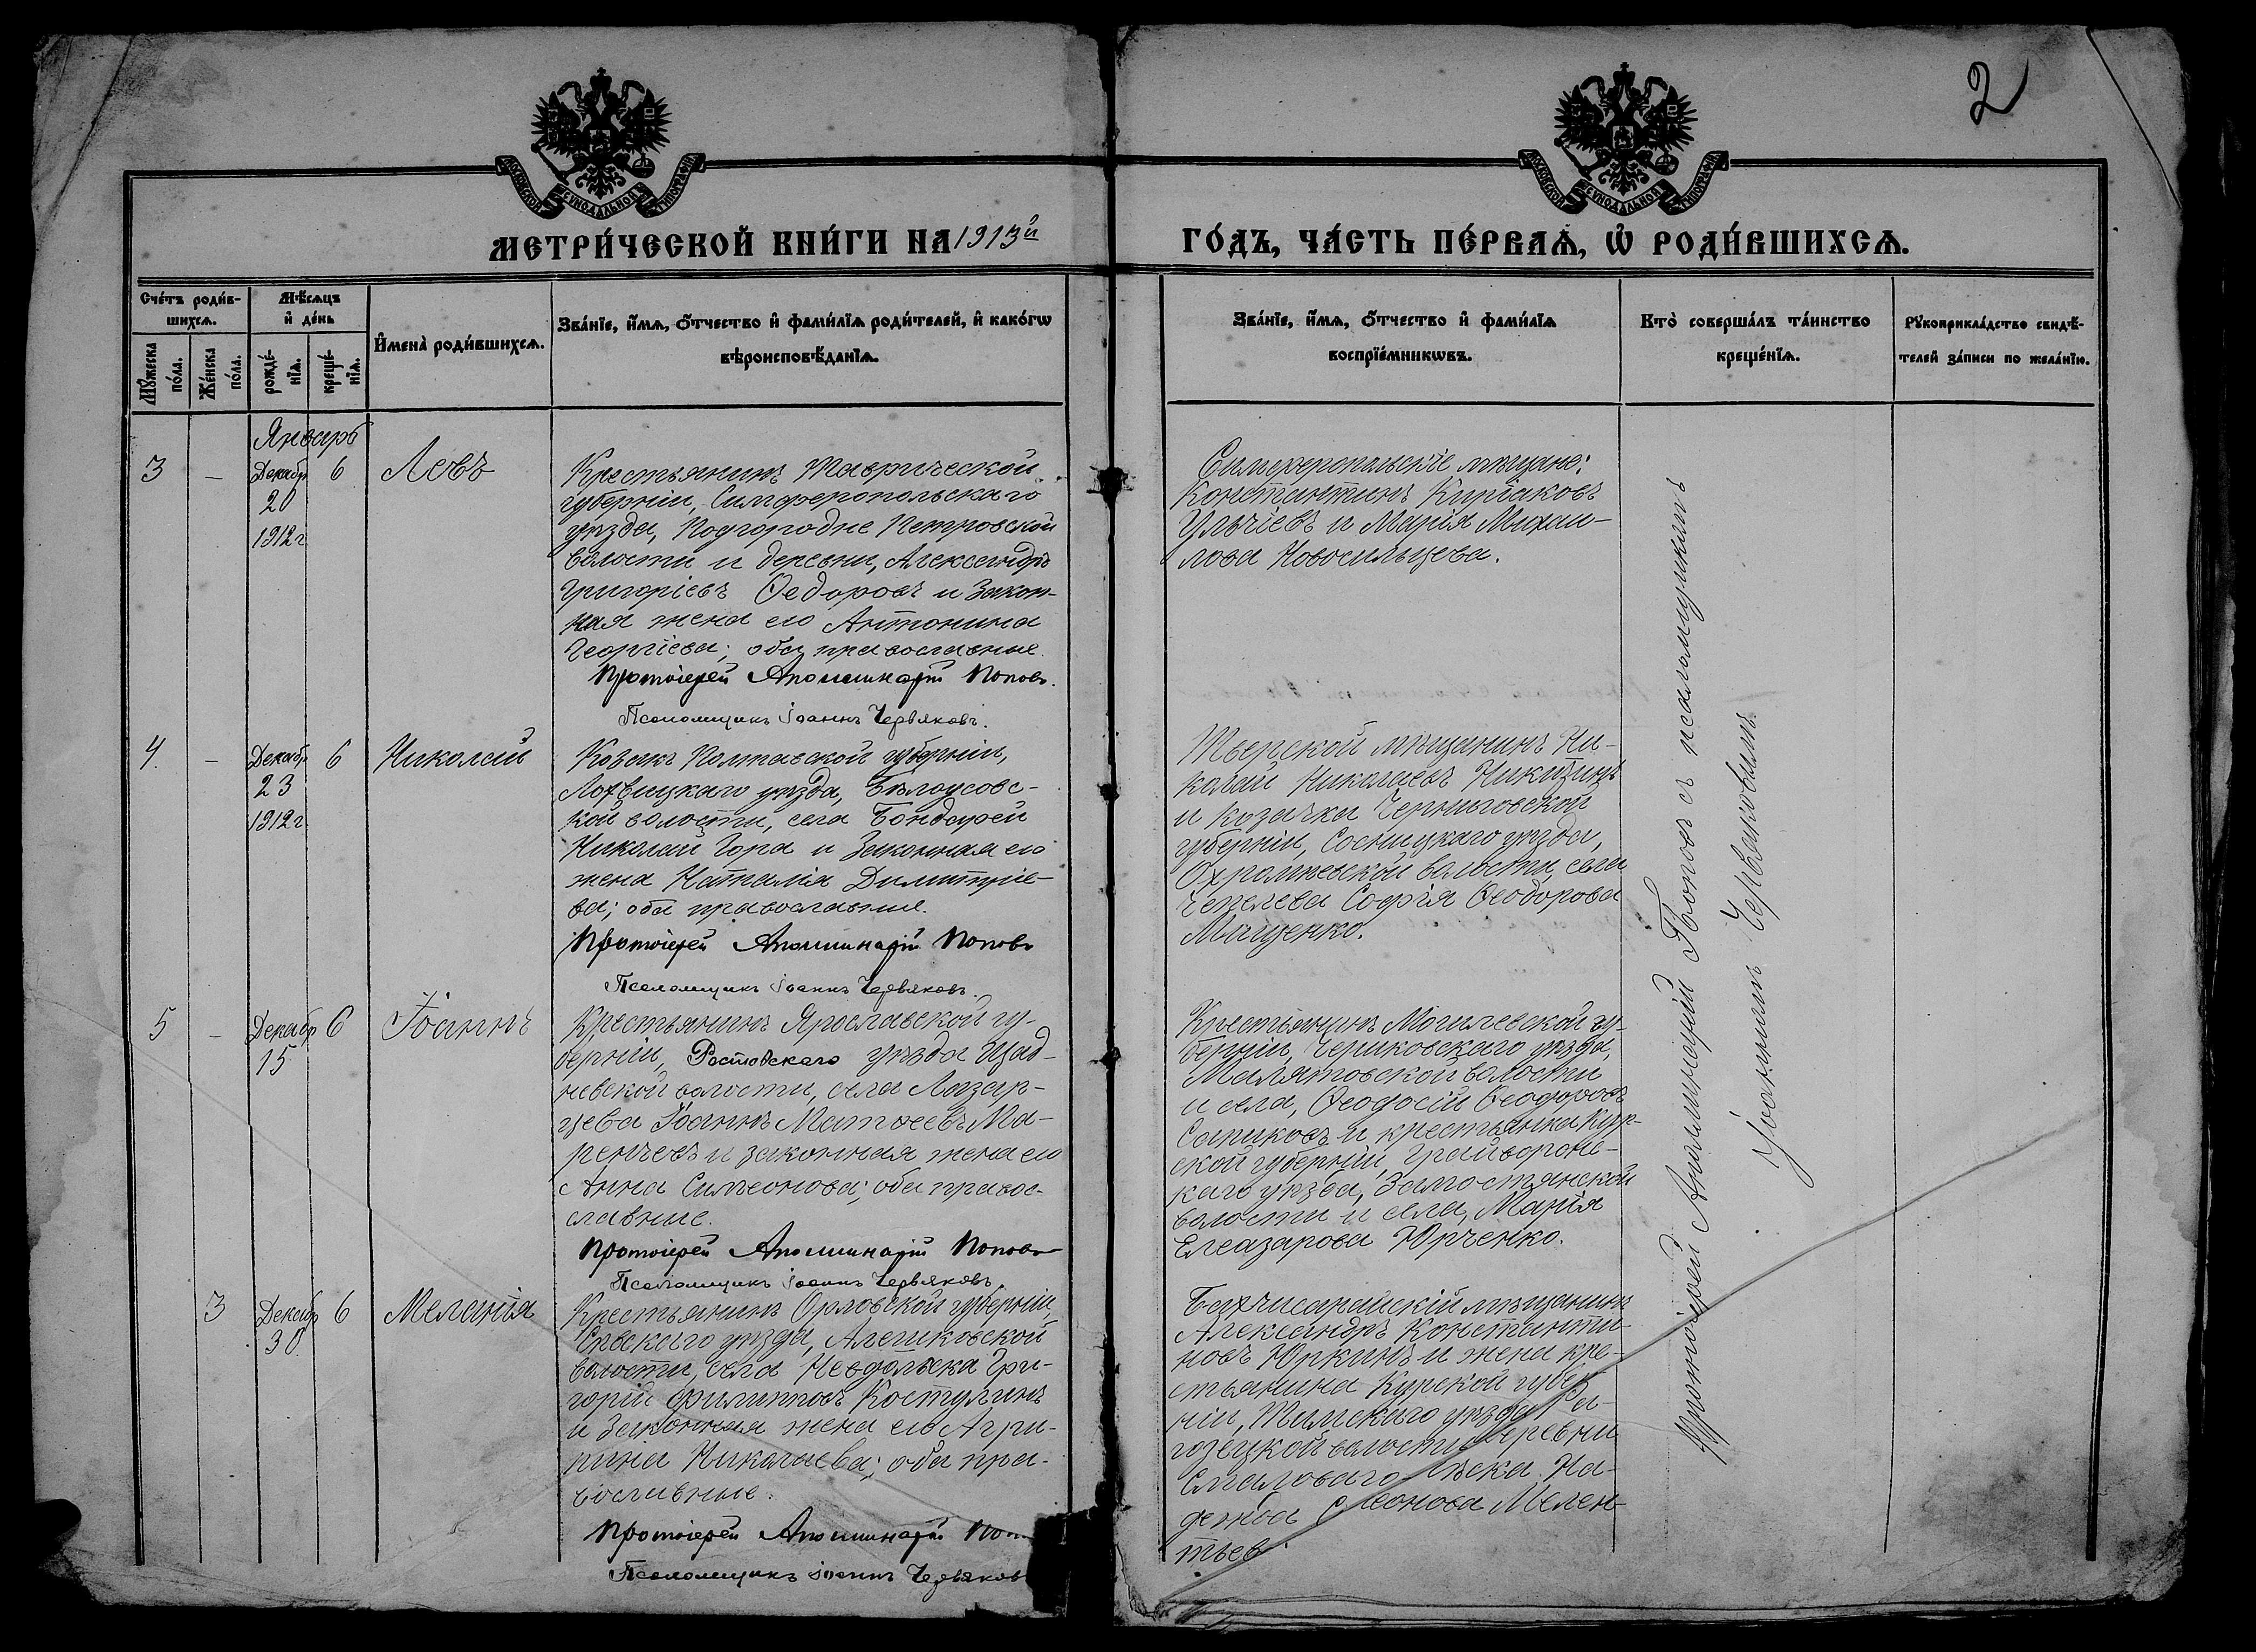 2
МОСКОВСКОЙ СУНОДАЛЬНОЙ ТИПОГРАФІИ
МОСКОВСКОЙ СУНОДАЛЬНОЙ ТИПОГРАФІИ
МЕТРИ́ЧЕСКОЙ КНИ́ГИ НА 1913й
ГО́ДЪ, ЧА́СТЬ ПЕ́РВАѦ, Ѡ҆ РОДИ́ВШИХСѦ.
Сче́тъ роди́в-
шихсѧ.
Мѣ́сѧцъ
и҆ де́нь
Мꙋ́жеска
по́ла.
Же́нска
по́ла.
рожде́-
нїѧ.
креще́-
нїѧ.
И҆мена̀ роди́вшихсѧ.
Зва́нїе, и҆́мѧ, ѻ҆́тчество и҆ фами́лїѧ роди́телей, и҆ како́гѡ
вѣроисповѣ́данїѧ.
Зва́нїе, и҆́мѧ, ѻ҆́тчество и҆ фами́лїѧ
воспрїе́мникѡвъ.
Кто̀ соверша́лъ та́инство
креще́нїѧ.
Рꙋкоприкла́дство свидѣ́-
телей за́писи по жела́нїю.
Январь
3 - Декабр 6 Левъ
20
1912 г
Крестьянинъ Таврической
губерніи, Симферопольскаго
уѣзда, Подгородне Петровской
волости и деревни, Александръ
Григоріевъ Ѳедоровъ и закон-
ная жена его Антонина
Георгіева; оба православные.
Протоіерей Аполлинарій Поповъ.
Псаломщикъ Іоаннъ Червяковъ.
Симферопольскіе мѣщане:
Константинъ Киріаковъ
и Марія Михаи-
лова Новосильцева.
4. - Декабр 6 Николай
23
1912 г
Козакъ Полтавской губерніи,
Лохвицкаго уѣзда, Бѣлоусовс-
кой волости, села Бондарей
Николай Гора и законная его
жена Наталія Димитріе-
ва; оба православные.
Протоіерей Аполлинарій Поповъ
Псаломщикъ Іоаннъ Червяковъ.
Тверской мѣщанинъ Ни-
колай Николаевъ Никитинъ
и козачка Черниговской
губерніи, Сосницкаго уѣзда,
Охрамѣевской волости, села
Чепелева Софія Ѳеодорова
Мащенко.
5 - Декабр 6 Іоаннъ
15
Крестьянинъ Ярославской гу-
берніи, Ростовскаго уѣзда Щад-
невской волости, села Лазар-
цева Іоаннъ Матѳеевъ Ма-
ренчевъ и законная жена его
Анна Симеонова; оба правос-
лавные.
Протоіерей Аполлинарій Поповъ
Псаломщикъ Іоаннъ Червяковъ.
Крестьянинъ Могилевской гу-
берніи, Чериковскаго уѣзда,
Малятовской волости
и села, Ѳеодосій Ѳеодоровъ
Сапиковъ и крестьянка Кур-
ской губерніи, Грайворонс-
каго уѣзда, Замостянской
волости и села, Марія
Елеазарова Юрченко.
3 Декабр 6 Меланія
30
Крестьянинъ Орловской губерніи,
Сѣвскаго уѣзда, Алешковской
волости, села Невдольска Гри-
горій Филипповъ Костулинъ
и законная жена его Агри-
пина Николаева; оба пра-
вославные.
Протоіерей Аполлинарій
Псаломщикъ Іоаннъ Червяков
Бахчисарайскій мѣщанинъ
Александръ Константи-
новъ Юркинъ и жена кре-
стьянина Курской губер
ніи, Тимскаго уѣзда,
волости деревни
На-
дежда Мелен-
тьев
Протоіерей Аполлинарій Поповъ съ псаломщикомъ
Іоанномъ Червяковымъ